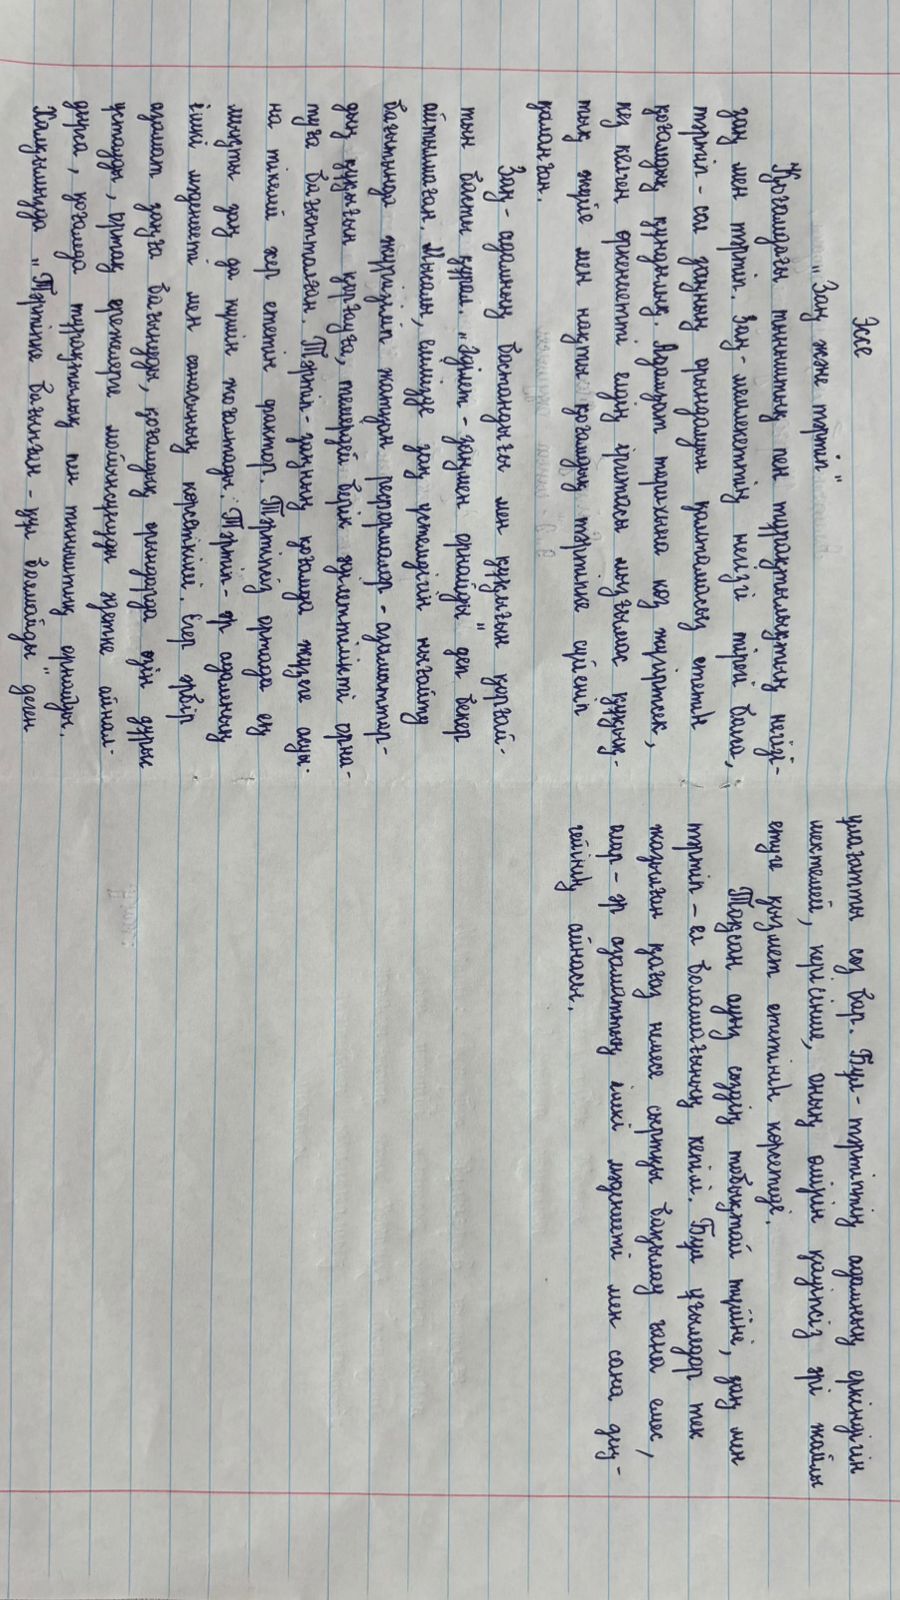 Эссе
"Заң және тәртіп"
Қоғамдағы тыныштық пен тұрақтылықтың негізі -
заң мен тәртіп. Заң - мемлекеттің негізгі тірегі болса,
тәртіп - сол заңның орындалуын қамтамасыз ететін
қоғамдық құндылық. Адамзат тарихына көз жүгіртсек,
кез келген өркениетті елдің іргетасы мызғымас құқық-
тық жүйе мен нақты қоғамдық тәртіпке сүйеніп
қаланған.
Заң - адамның бостандығы мен құқығын қорғай-
тын басты құрал. "Әділет - заңмен орнайды" деп бекер
айтылмаған. Мысалы, елімізде заң үстемдігін нығайту
бағытында жүргізіліп жатқан реформалар - азаматтар-
дың құқығын қорғауға, темірдей берік әділеттілікті орна-
туға бағытталған. Тәртіп - заңның қоғамда жүзеге асуы-
на тікелей әсер ететін фактор. Тәртіпсіз ортада ең
мықты заң да күшін жоғалтады. Тәртіп - әр адамның
ішкі мәдениеті мен санасының көрсеткіші. Егер әрбір
азамат заңға бағынуды, қоғамдық орындарда өзін дұрыс
ұстауды, ортақ ережелерге мойынсұнуды әдетке айнал-
дырса, қоғамда тұрақтылық пен тыныштық орнайды.
Халқымызда "Тәртіпке бағынған - құл болмайды" деген
ұлағатты сөз бар. Бұл - тәртіптің адамның еркіндігін
шектемей, керісінше, оның өмірін қауіпсіз әрі жайлы
етуге қызмет ететінін көрсетеді.
Тоқсан ауыз сөздің тобықтай түйіні, заң мен
тәртіп - ел болашағының кепілі. Бұл ұғымдар тек
жазылған қағаз немесе сыртқы бақылау ғана емес,
олар - әр азаматтың ішкі мәдениеті мен сана дең-
гейінің айнасы.